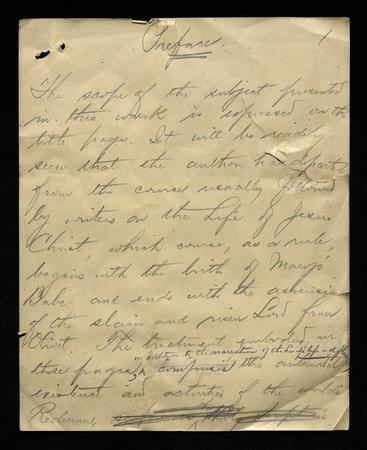 Preface. 1
The scope of the subject presented
in this work is expressed on the
title page. It will be readily
seen that the author has departed
from the course usually followed
by writers on the Life of Jesus
Christ, which course, as a rule,
begins with the birth of Mary's
Babe and ends with the ascension
of the slain and risen Lord from
Olivet. The treatment embodied in
in addition to the narration of the Lord's life in the flesh
these pages, comprises the antemortal
existence and activities of the world's
Redeemer,